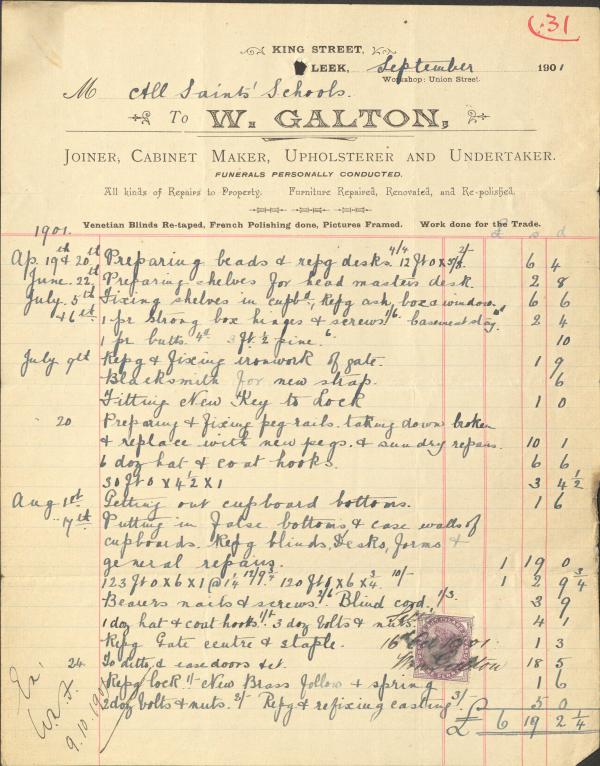 :31
KING STREET,
LEEK, September 1901
Workshop: Union Street.
M All Saints' Schools.
To W. GALTON,
JOINER, CABINET MAKER, UPHOLSTERER AND UNDERTAKER.
FUNERALS PERSONALLY CONDUCTED.
All kinds of Repairs to Property. Furniture Repaired, Renovated, and Re-polished.
Venetian Blinds Re-taped, French Polishing done, Pictures Framed. Work done for the Trade.
1901. £ s d
Ap. 19th & 20th Preparing beads & repg desks. 4/4 12 ft 0 x 5/8 2/- 6 4
June 22nd Preparing shelves for head masters desk. 2 8
July 5th Fixing shelves in cupbd, Repg ash box & window. 6 6
& 6th 1 pr Strong box hinges & screws 1/6 Casement stay 2 4
1 pr butts. 4d 3 ft ½ pine. 6 10
July 9th Repg & fixing ironwork of gate. 1 9
Blacksmith for new strap. 6
Fitting New Key to Lock 1 0
20 Preparing & fixing peg rails. taking down broken
& replace with new pegs. & sundry repairs. 10 1
6 doz hat & coat hooks. 6 6
30 ft 0 x 4½ x 1 3 4½
Aug 1st Getting out cupboard bottoms. 1 6
" 7th Putting in false bottoms & case walls of
cupboards. Repg blinds, Desks, forms &
general repairs. 1 19 0
123 ft 0 x 6 x 1 @ 1¼ 12/9¾ 120 ft 0 x 6 x ¾ 10/- 1 2 9¾
Bearers nails & screws. 2/6 Blind cord, 1/3. 3 9
1 doz hat & coat hooks. 1/1 3 doz bolts & nuts. 4 1
Repg Gate centre & staple. 16 Oct 1901 1 3
24 To ditto, & ease doors &et. Wm Galton 18 5
Repg lock 1/- New Brass follow & spring 1 6
2 doz bolts & nuts. 2/- Repg & refixing casting 3/- 5 0
£ 6 19 2¼
9.10.1901